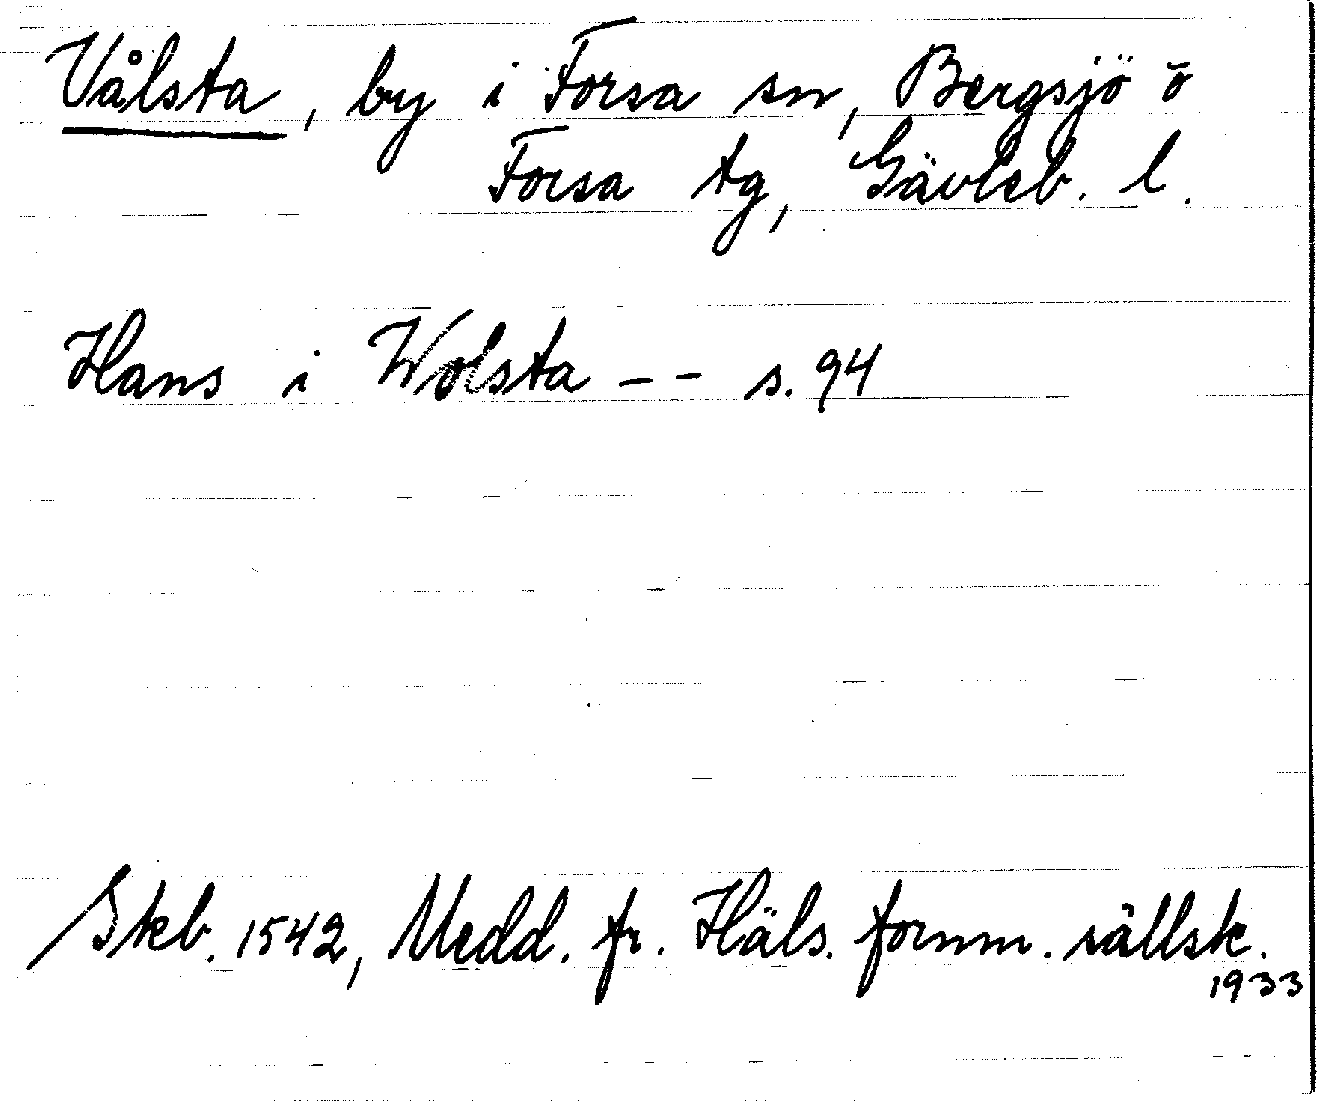 Vålsta, by i Forsa sn, Bergsjö o
Forsa tg, Gävleb. l.
Hans i Wolsta -- s. 94
Skb. 1542, Medd. fr. Häls. fornm. sällsk.
1933